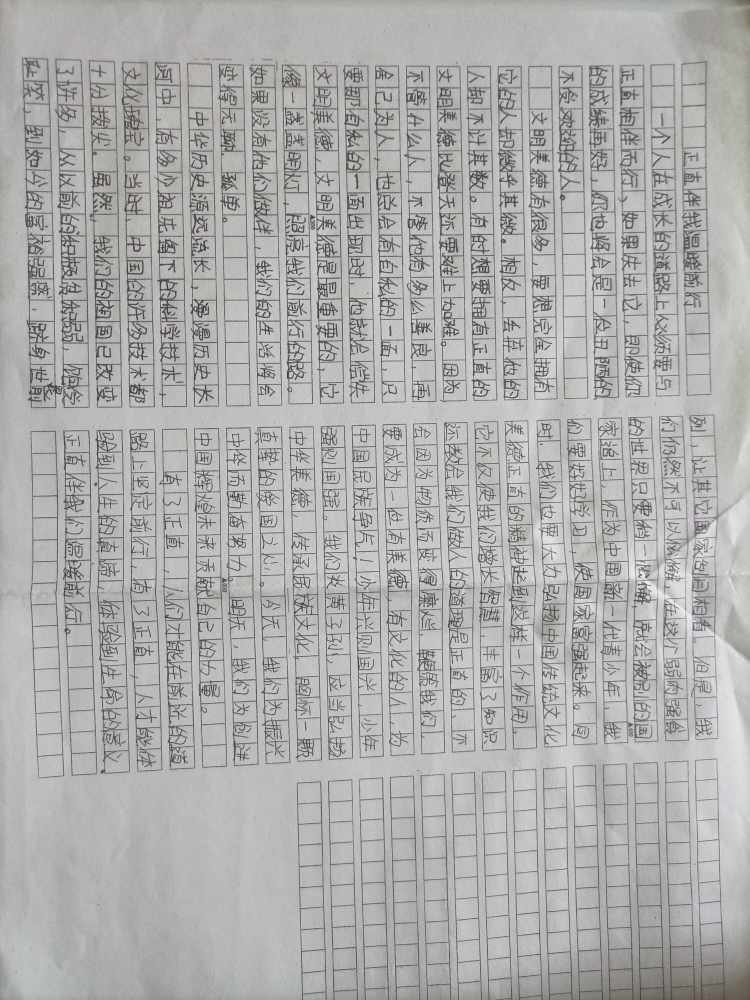 正直伴我温暖前行
一个人在成长的道路上必须要与
正直相伴而行，如果失去它，即使你
的成绩再好，你也将会是一个丑陋的
不受欢迎的人。
文明美德有很多，要想完全拥有
它的人却微乎其微。相反，丢弃他的
人却不计其数。有时想要拥有正直的
文明美德比登天还要难上加难。因为
不管什么人，不管他有多么善良，再
舍己为人，也总会有自私的一面，只
要那自私的一面出现时，他就会偿失
文明美德，文明美德是最重要的，它
像一盏盏明灯，照亮我们前行的路。
如果没有他们做伴，我们的生活将会
变得无聊、孤单。
中华历史源远流长，漫漫历史长
河中，有多少祖先留下的科学技术，
文化瑰宝。当时，中国的许多技术都
十分拔尖。虽然，我们的祖国已改变
了许多，从以前的落后贫弱，饱受
耻笑，到如今的富裕强盛，跻身世界前
列，让其它国家刮目相看。但是，我
们仍然不可以松懈，在这个弱肉强食
的世界只要稍一松懈，就会被别的国
家追上，作为中国新一代青少年，我
们要好好学习，使国家富强起来。同
时，我们也要大力弘扬中国传统文化
美德正直的精神起到这样一个作用，
它不仅使我们增长智慧，丰富了知识
还教会我们做人的道理是正直的，不
会因为物质而变得糜烂，鞭策我们，
要成为一世有美德，有文化的人，为
中国民族争光！少年兴则国兴，少年
强则国强。我们炎黄子孙，应当弘扬
中华美德，传承民族文化，胸怀一颗
真挚的爱国之心。今天，我们为振兴
中华而勤奋努力，明天，我们为创进
中国辉煌未来贡献自己的力量。
有了正直，人们才能在前进的道
路上坚定前行，有了正直，人才能体
验到人生的真谛，体验到生命的意义。
正直伴我们温暖前行。